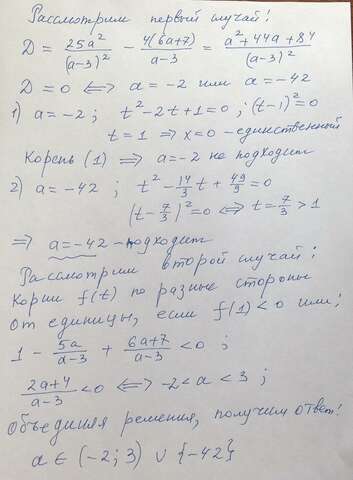 Рассмотрим первый случай!
D = 25a²/(a-3)² - 4(6a+7)/(a-3) = a²+44a+84/(a-3)²
D = 0 ⟺ a = -2 или a = -42
1) a = -2 ; t²-2t+1=0 ; (t-1)²=0
t = 1 ⇒ x=0 - единственный
Корень (1) ⟹ a=-2 не подходит
2) a = -42 ; t² - 14/3 t + 49/9 = 0
(t - 7/3)² = 0 ⟺ t = 7/3 > 1
⇒ a = -42 - подходит
Рассмотрим второй случай!
Корни f(t) по разные стороны
От единицы, если f(1) < 0 или!
1 - 5a/(a-3) + (6a+7)/(a-3) < 0 ;
(2a+4)/(a-3) < 0 ⟺ -2 < a < 3 ;
Объединяя решения, получим ответ!
a ∈ (-2; 3) ∪ {-42}